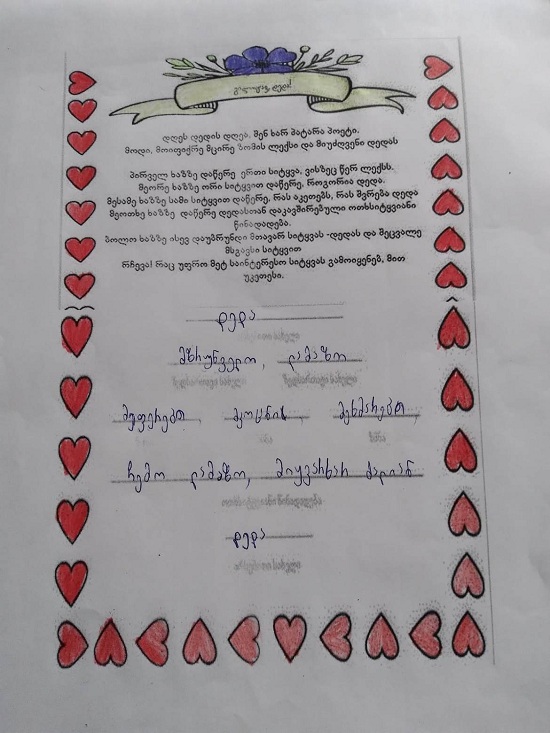 დღეს დედის დღეა, შენ ხარ პატარა პოეტი.
მოდი, მოიფიქრე მცირე ზომის ლექსი და მიუძღვენი დედას
პირველ ხაზზე დაწერე ერთი სიტყვა, ვისზეც წერ ლექსს.
მეორე ხაზზე ორი სიტყვით დაწერე, როგორია დედა.
მესამე ხაზზე სამი სიტყვით დაწერე, რას აკეთებს, რას შვრება დედა
მეოთხე ხაზზე დაწერე დედასთან დაკავშირებული ოთხსიტყვიანი
წინადადება.
ბოლო ხაზზე ისევ დაუბრუნდი მთავარ სიტყვას -დედას და შეცვალე
მსგავსი სიტყვით
რჩევა! რაც უფრო მეტ საინტერესო სიტყვას გამოიყენებ, მით
უკეთესი.
დედა
მზრუნველი, ლამაზი
ზედსართავი სახელი ზედსართავი სახელი
გვეფერება, გვკოცნის, გვეხმარება,
ზმნა
ჩემო ლამაზო, მიყვარხარ ძალიან
ოთხსიტყვიანი წინადადება
დედა
არსებითი სახელი